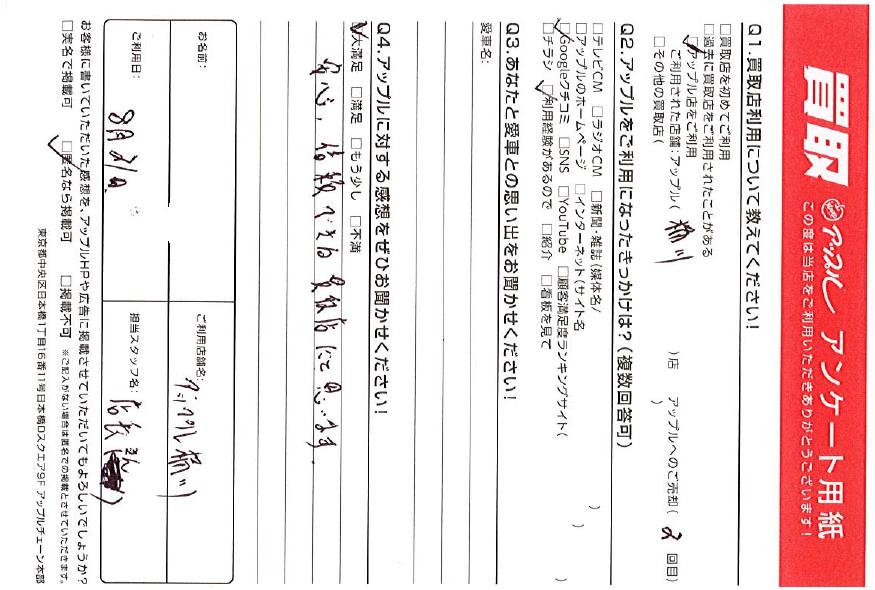 買取 アップル アンケート用紙
この度は当店をご利用いただきありがとうございます!
Q1.買取店利用について教えてください!
□買取店を初めてご利用
□過去に買取店をご利用されたことがある
☑アップル店をご利用
ご利用された店舗:アップル( 桶川 )店 アップルへのご売却( 2 回目)
□その他の買取店( )
Q2.アップルをご利用になったきっかけは?(複数回答可)
□テレビCM □ラジオCM □新聞・雑誌(媒体名/ )
□アップルのホームページ □インターネット(サイト名 )
☑Googleクチコミ □SNS □YouTube □顧客満足度ランキングサイト( )
□チラシ ☑利用経験があるので □紹介 □看板を見て
Q3.あなたと愛車との思い出をお聞かせください!
愛車名:
Q4.アップルに対する感想をぜひお聞かせください!
☑大満足 □満足 □もう少し □不満
安心、信頼できる買取店だと思います。
お名前:
ご利用店舗名: アップル桶川
ご利用日: 8月21日
担当スタッフ名: 店長さん
お客様に書いていただいた感想を、アップルHPや広告に掲載させていただいてもよろしいでしょうか?
□実名で掲載可 ☑匿名なら掲載可 □掲載不可 ※ご記入がない場合は匿名での掲載とさせていただきます。
東京都中央区日本橋1丁目16番11号日本橋Dスクエア9F アップルチェーン本部